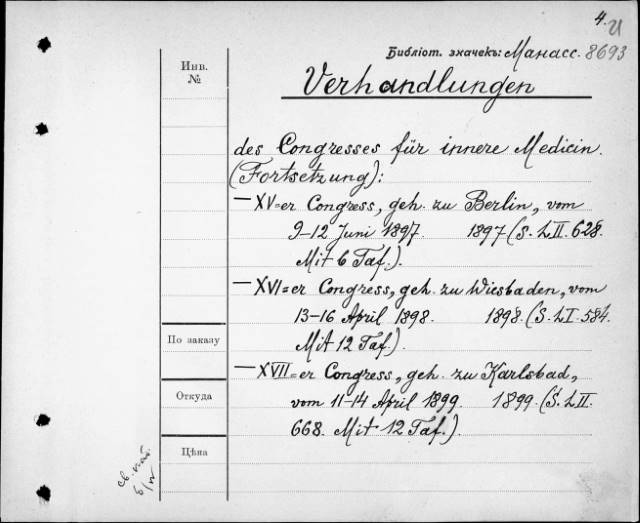 4.
И
Библіот. значекъ: Манасс. 8693
Инв.
№
Verhandlungen
des Congresses für innere Medicin.
(Fortsetzung):
— XV=er Congress, geh. zu Berlin, vom
9–12 Juni 1897. 1897 (S. LII. 628.
Mit 6 Taf.).
— XVI=er Congress, geh. zu Wiesbaden, vom
13–16 April 1898. 1898. (S. LI. 584.
Mit 12 Taf.).
По заказу
— XVII=er Congress, geh. zu Karlsbad,
Откуда
vom 11–14 April 1899. 1899. (S. LII.
668. Mit 12 Taf.).
Цѣна